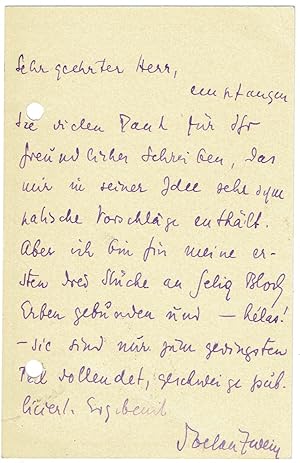 Sehr geehrter Herr,
empfangen
Sie vielen Dank für Ihr
freundliches Schreiben, das
mir in seiner Idee sehr sym
patische Vorschläge enthält.
Aber ich bin für meine er-
sten drei Stücke an Felix Bloch
Erben gebunden und – hélas!
– sie sind nur zum geringsten
Teil vollendet, geschweige pub-
liciert. Ergebenst
Stefan Zweig